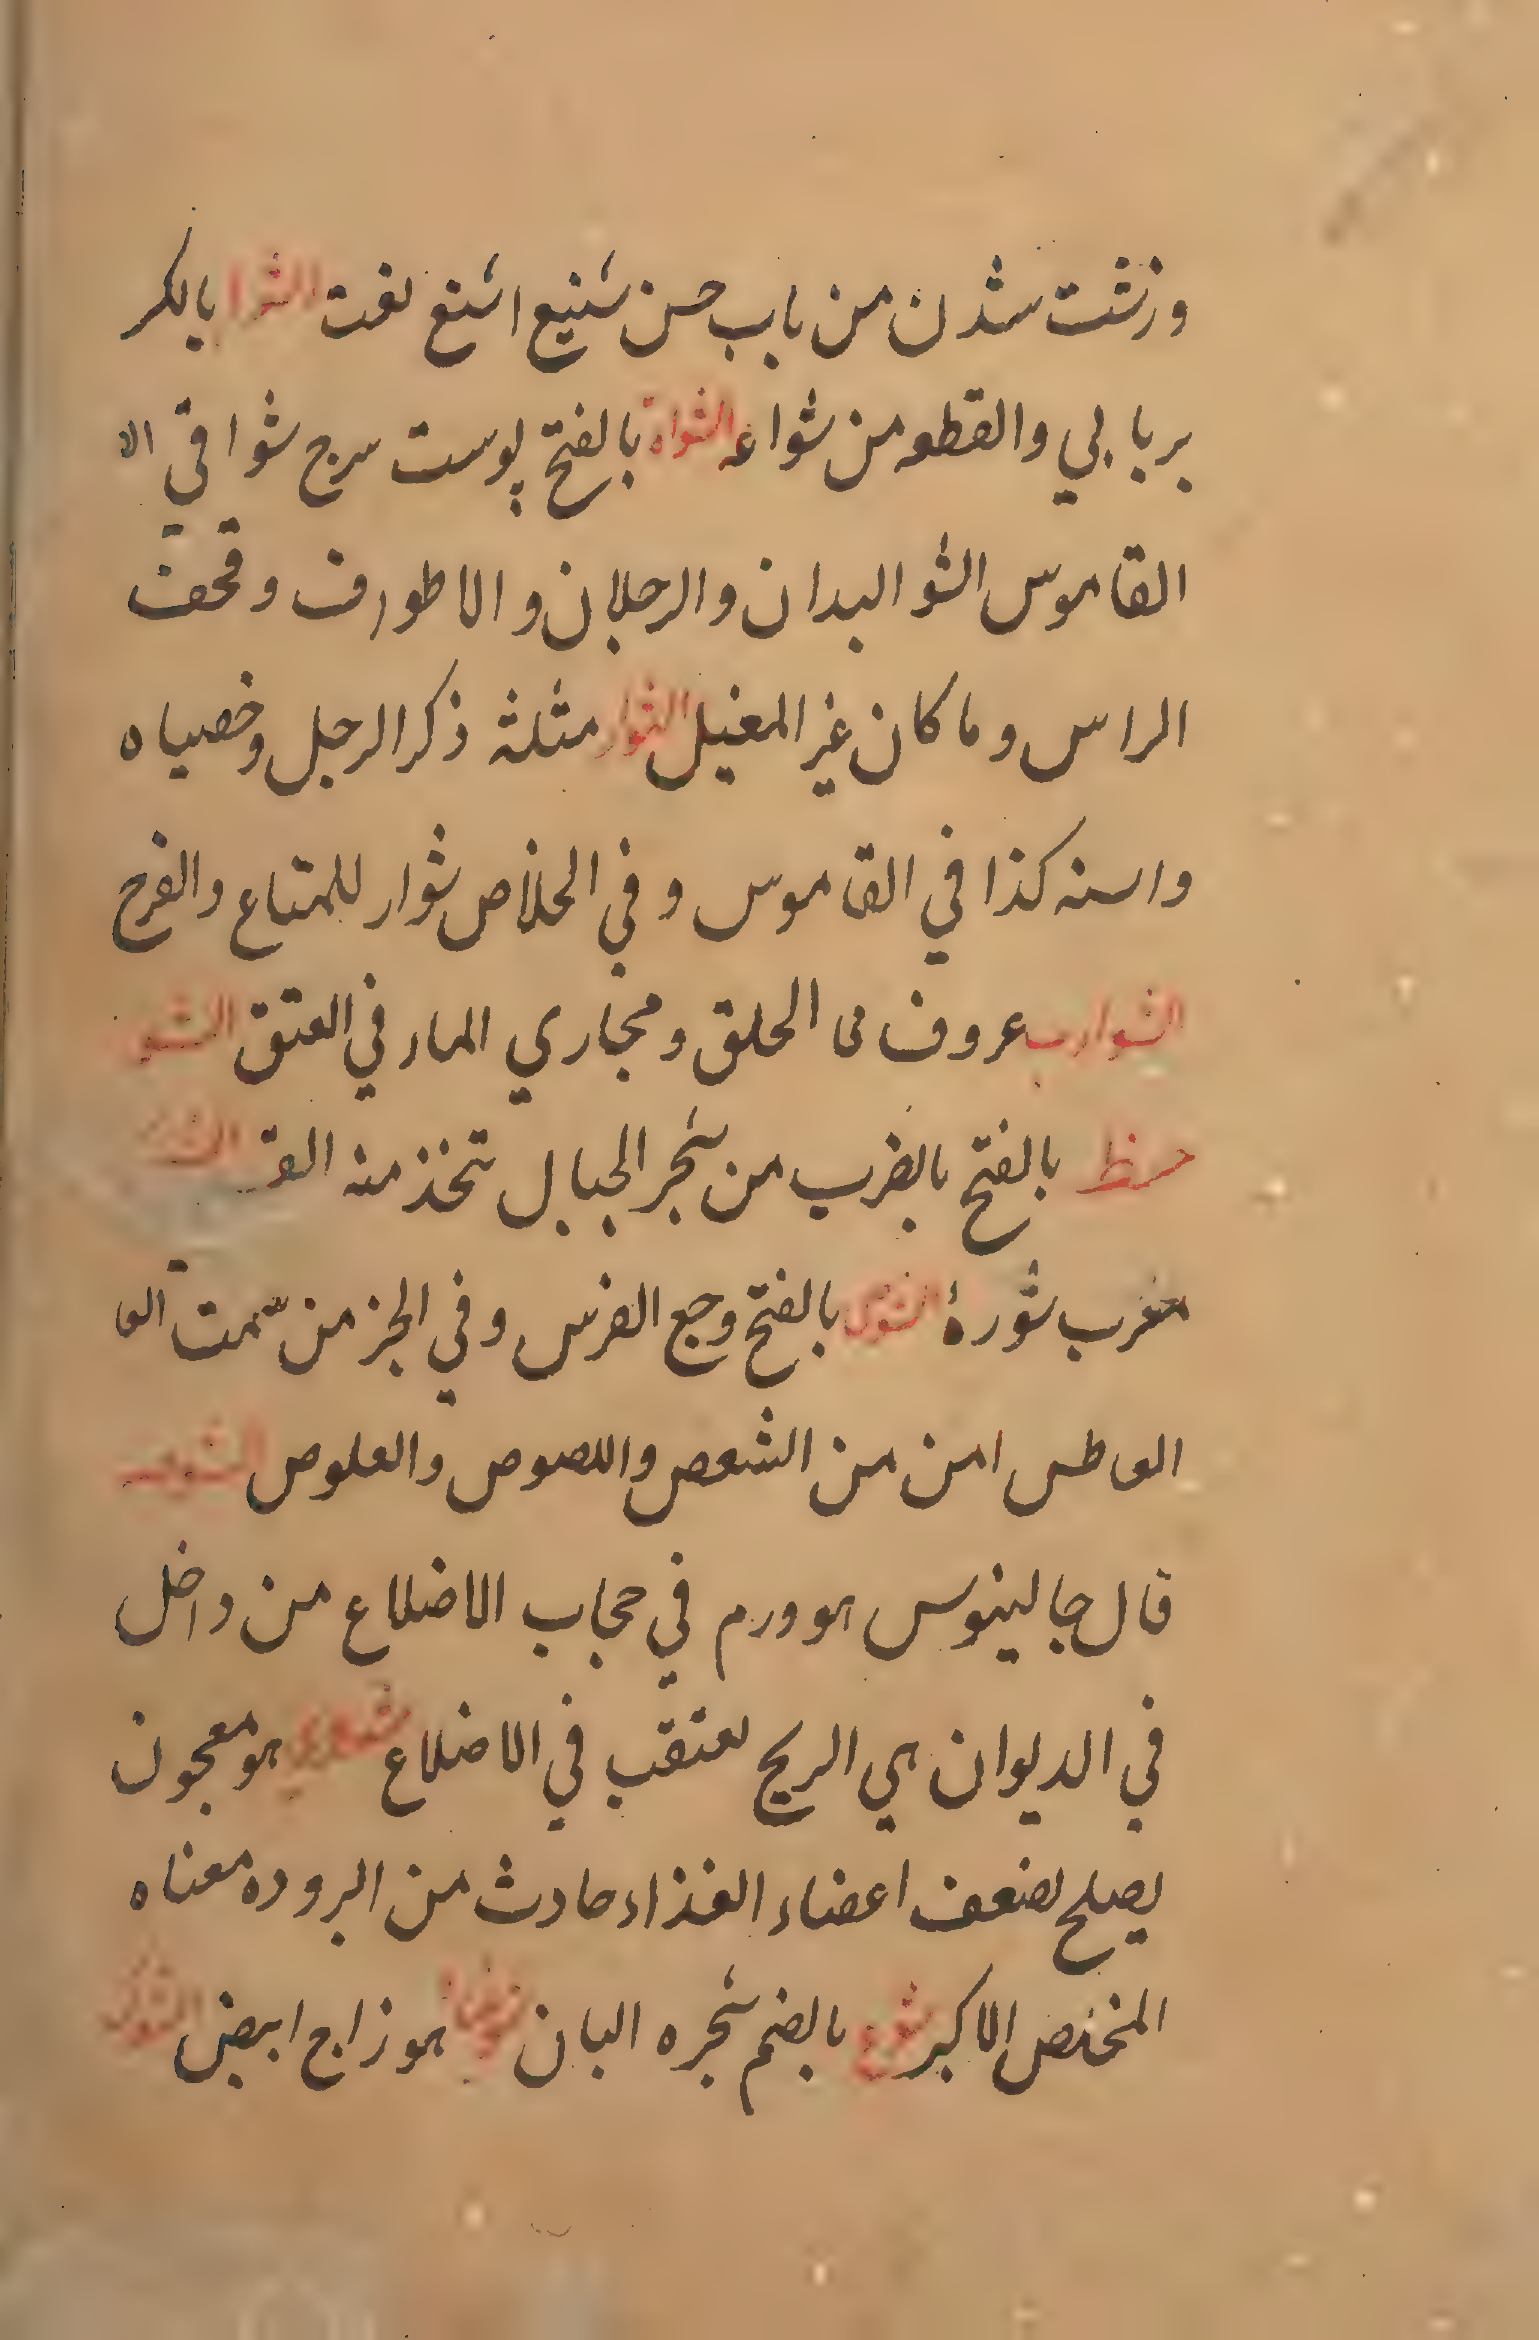 وزشت شدن من باب حسن شنیع اشنع لغت الشوا بالکر
بربابي والقطعه من شواعه الشواة بالفتح پوست سرج شوا في الا
القاموس الشو البدان والرحلان والاطورف وقحف
الراس وما کان غیر المغیل الشوار مثلثة ذکر الرجل وخصیاه
واسته کذا في القاموس وفي الخلاص شوار للمتاع والفرج
الشوارب عروف فی الحلق ومجاري الماء في العتق الشو
حط بالفتح بالضرب من شجر الجبال تتخذ منه القو
مغرب شورۀ الشوص بالفتح وجع الضرس وفي الجز من سمت العا
العاطس امن من الشعص واللصوص والعلوص الشوصه
قال جالینوس هو ورم في حجاب الاضلاع من داخل
في الدیوان هي الریح لعتقب في الاضلاع هو معجون
یصلح لضعف اعضاء الغذاء حادث من البروده معناه
المخلص الاکبر شوع بالضم شجره البان هو زاج ابیض